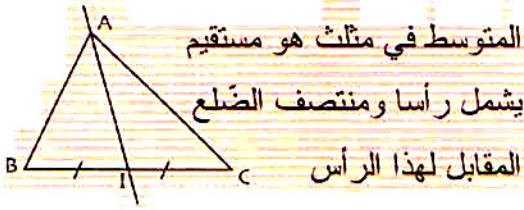 المتوسط في مثلث هو مستقيم
يشمل رأسا ومنتصف الضّلع
المقابل لهذا الرأس
A
B
I
C